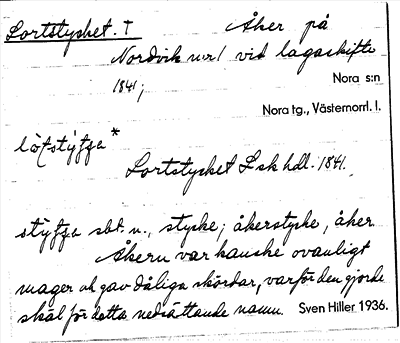 Lortstycket. †
Åker på
Nordvik nr 1 vid lagaskifte
1841;
Nora s:n
Nora tg., Västernorrl. l.
Lortstycket Lsk hdl. 1841.
sbt. n., stycke; åkerstycke, åker.
Åkern var kanske ovanligt
mager och gav dåliga skördar, varför den gjorde
skäl för detta nedsättande namn. Sven Hiller 1936.